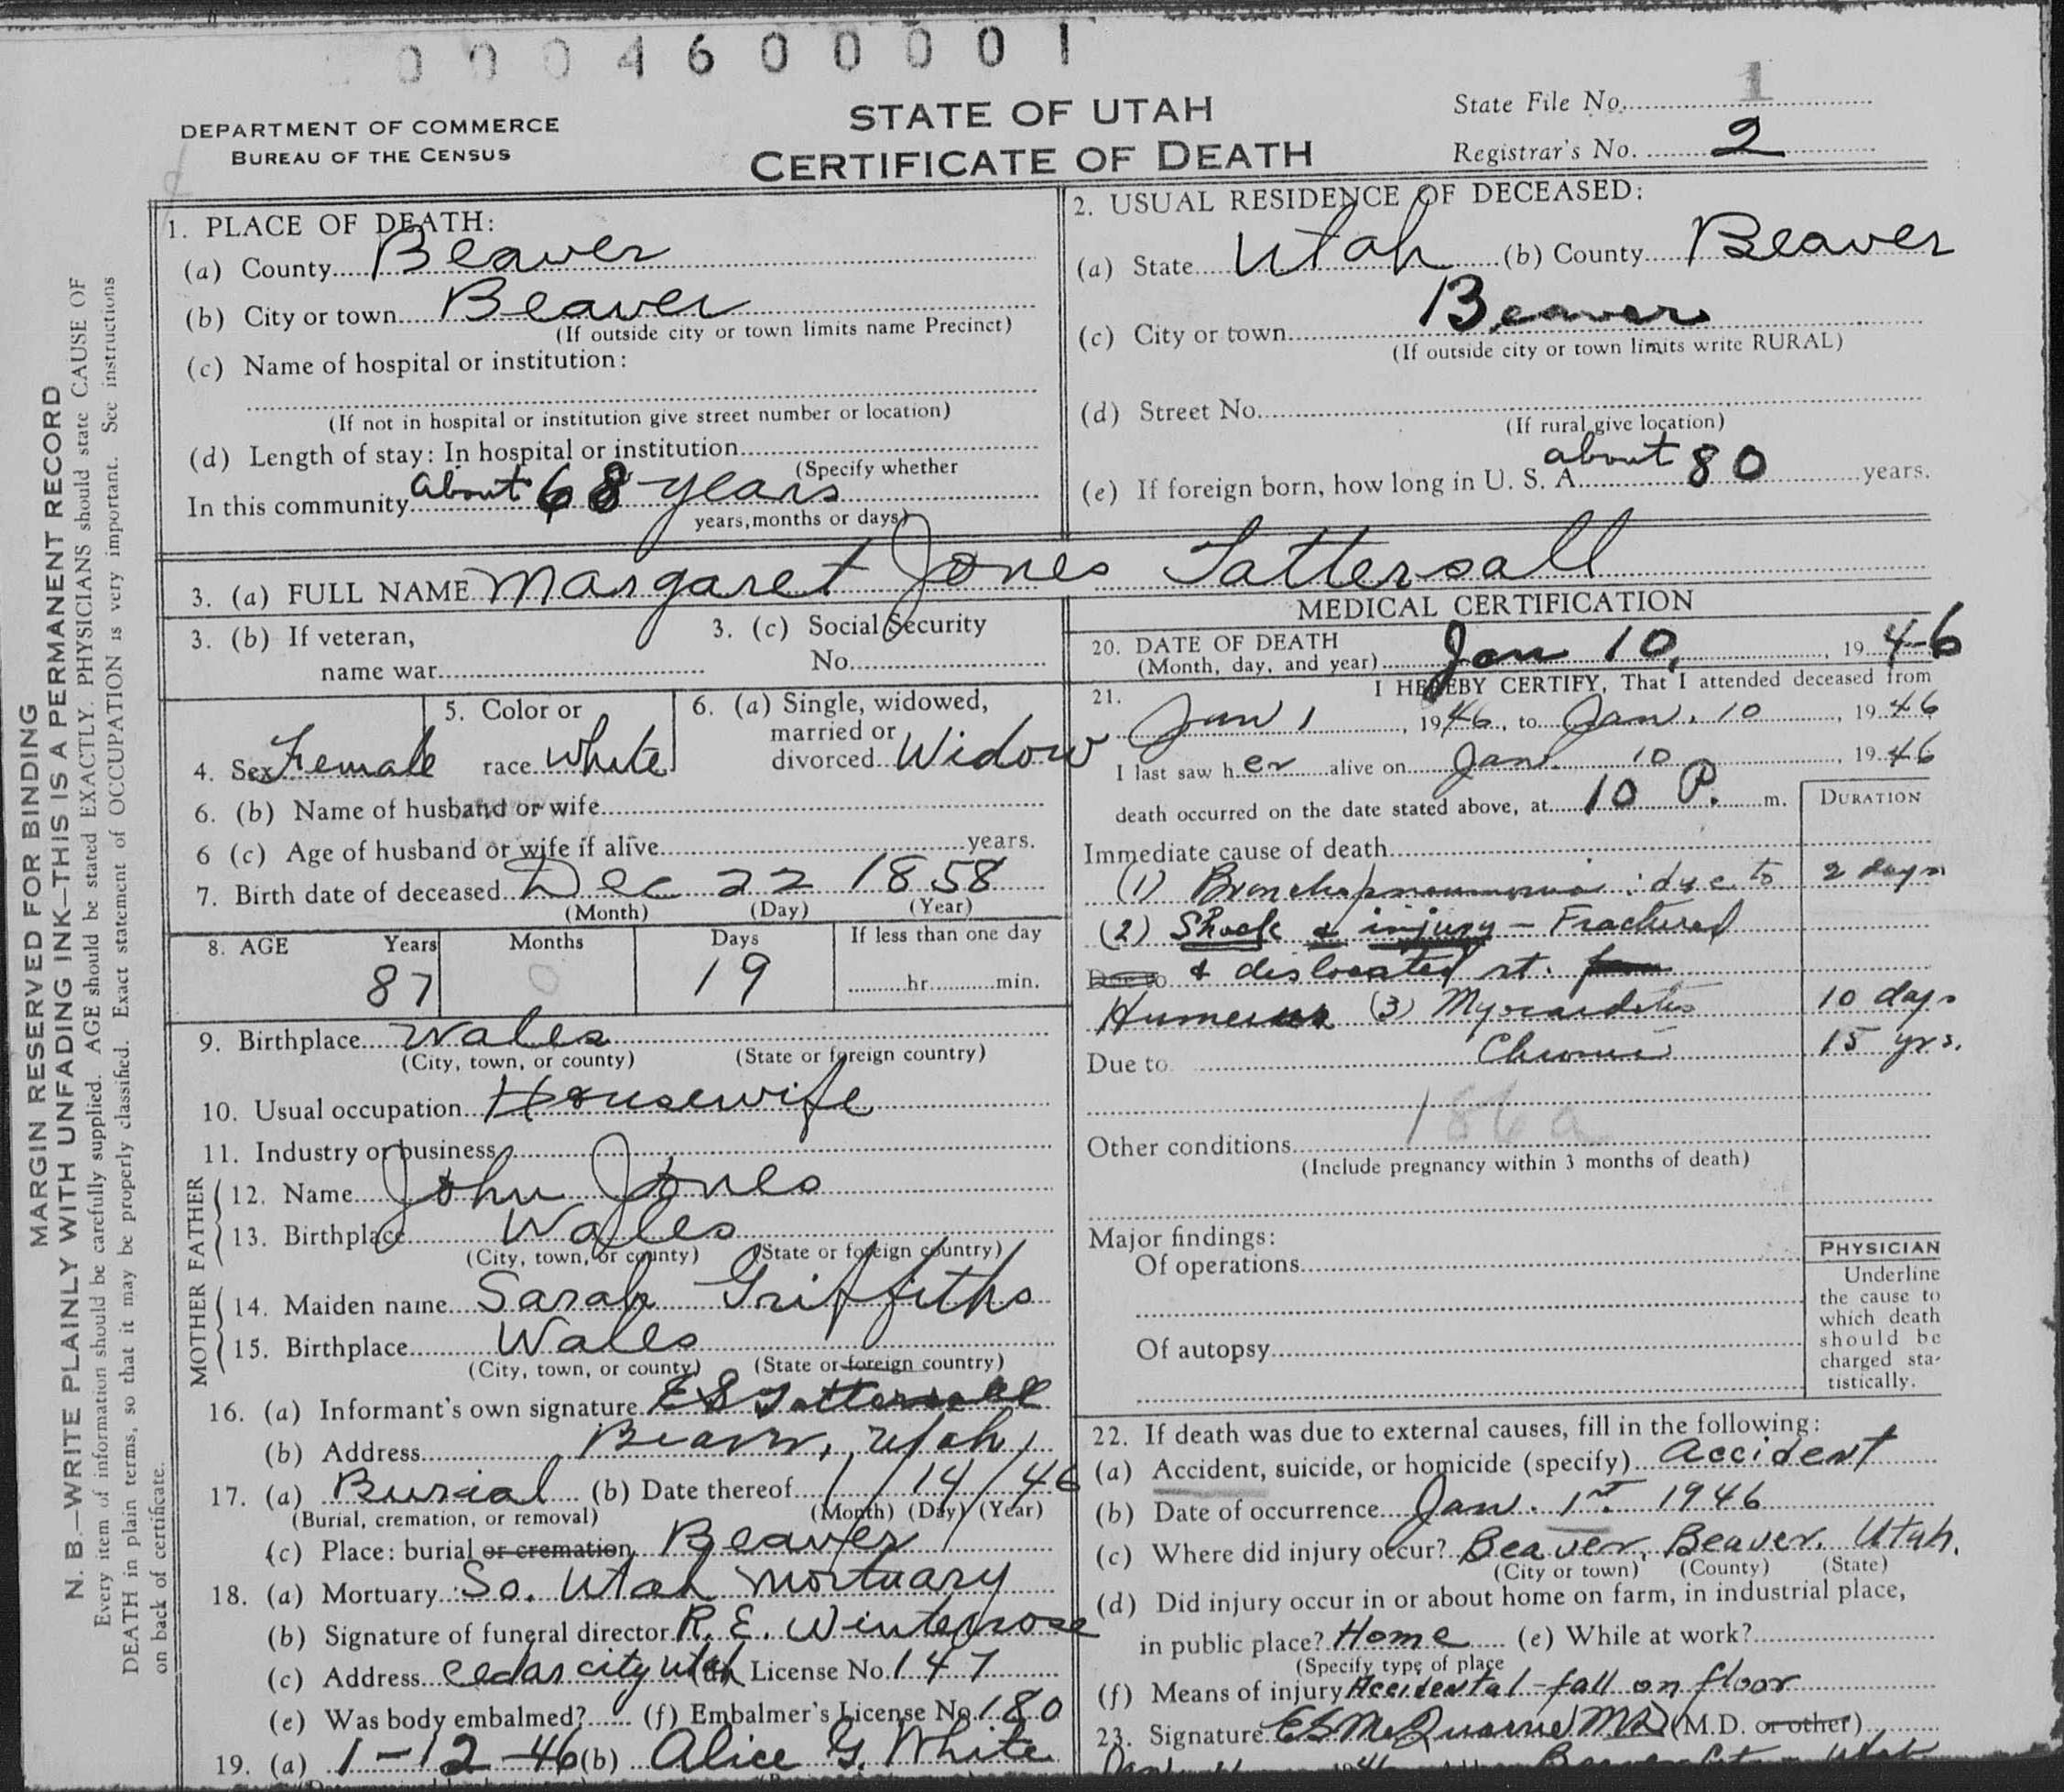 0 0 0 4 6 0 0 0 0 1
DEPARTMENT OF COMMERCE
BUREAU OF THE CENSUS
STATE OF UTAH
CERTIFICATE OF DEATH
State File No. 1
Registrar's No. 2
MARGIN RESERVED FOR BINDING
N. B.—WRITE PLAINLY WITH UNFADING INK—THIS IS A PERMANENT RECORD
Every item of information should be carefully supplied. AGE should be stated EXACTLY. PHYSICIANS should state CAUSE OF
DEATH in plain terms, so that it may be properly classified. Exact statement of OCCUPATION is very important. See instructions
on back of certificate.
1. PLACE OF DEATH:
(a) County Beaver
(b) City or town Beaver
(If outside city or town limits name Precinct)
(c) Name of hospital or institution:
(If not in hospital or institution give street number or location)
(d) Length of stay: In hospital or institution
(Specify whether
In this community About 68 years
years, months or days)
2. USUAL RESIDENCE OF DECEASED:
(a) State Utah (b) County Beaver
(c) City or town Beaver
(If outside city or town limits write RURAL)
(d) Street No.
(If rural give location)
(e) If foreign born, how long in U. S. A. about 80 years.
3. (a) FULL NAME Margaret Jones Tattersall
3. (b) If veteran,
name war
3. (c) Social Security
No.
4. Sex Female
5. Color or
race White
6. (a) Single, widowed,
married or
divorced Widow
6. (b) Name of husband or wife
6 (c) Age of husband or wife if alive years.
7. Birth date of deceased Dec 22 1858
(Month) (Day) (Year)
8. AGE Years Months Days If less than one day
87 0 19 hr. min.
9. Birthplace Wales
(City, town, or county) (State or foreign country)
10. Usual occupation Housewife
11. Industry or business
FATHER
12. Name John Jones
13. Birthplace Wales
(City, town, or county) (State or foreign country)
MOTHER
14. Maiden name Sarah Griffiths
15. Birthplace Wales
(City, town, or county) (State or foreign country)
16. (a) Informant's own signature E S Tattersall
(b) Address Beaver, Utah
17. (a) Burial (b) Date thereof 1/14/46
(Burial, cremation, or removal) (Month) (Day) (Year)
(c) Place: burial or cremation Beaver
18. (a) Mortuary So. Utah Mortuary
(b) Signature of funeral director R. E. Winterrose
(c) Address Cedar City Utah (d) License No. 147
(e) Was body embalmed? (f) Embalmer's License No. 180
19. (a) 1-12-46 (b) Alice G. White
MEDICAL CERTIFICATION
20. DATE OF DEATH
(Month, day, and year) Jan 10, 1946
21. I HEREBY CERTIFY, That I attended deceased from
Jan 1, 1946, to Jan. 10, 1946
I last saw her alive on Jan. 10, 1946
death occurred on the date stated above, at 10 P. m.
DURATION
Immediate cause of death
(1) Bronchopneumonia : due to 2 days
(2) Shock & injury – Fractured
Due to & dislocated rt.
Humerus (3) Myocarditis 10 days
Due to Chronic 15 yrs.
186a
Other conditions
(Include pregnancy within 3 months of death)
Major findings:
Of operations
Of autopsy
PHYSICIAN
Underline
the cause to
which death
should be
charged sta-
tistically.
22. If death was due to external causes, fill in the following:
(a) Accident, suicide, or homicide (specify) Accident
(b) Date of occurrence Jan. 1st 1946
(c) Where did injury occur? Beaver, Beaver, Utah.
(City or town) (County) (State)
(d) Did injury occur in or about home on farm, in industrial place,
in public place? Home (e) While at work?
(Specify type of place
(f) Means of injury Accidental – fall on floor
23. Signature E S McQuarrie MD (M.D. or other)